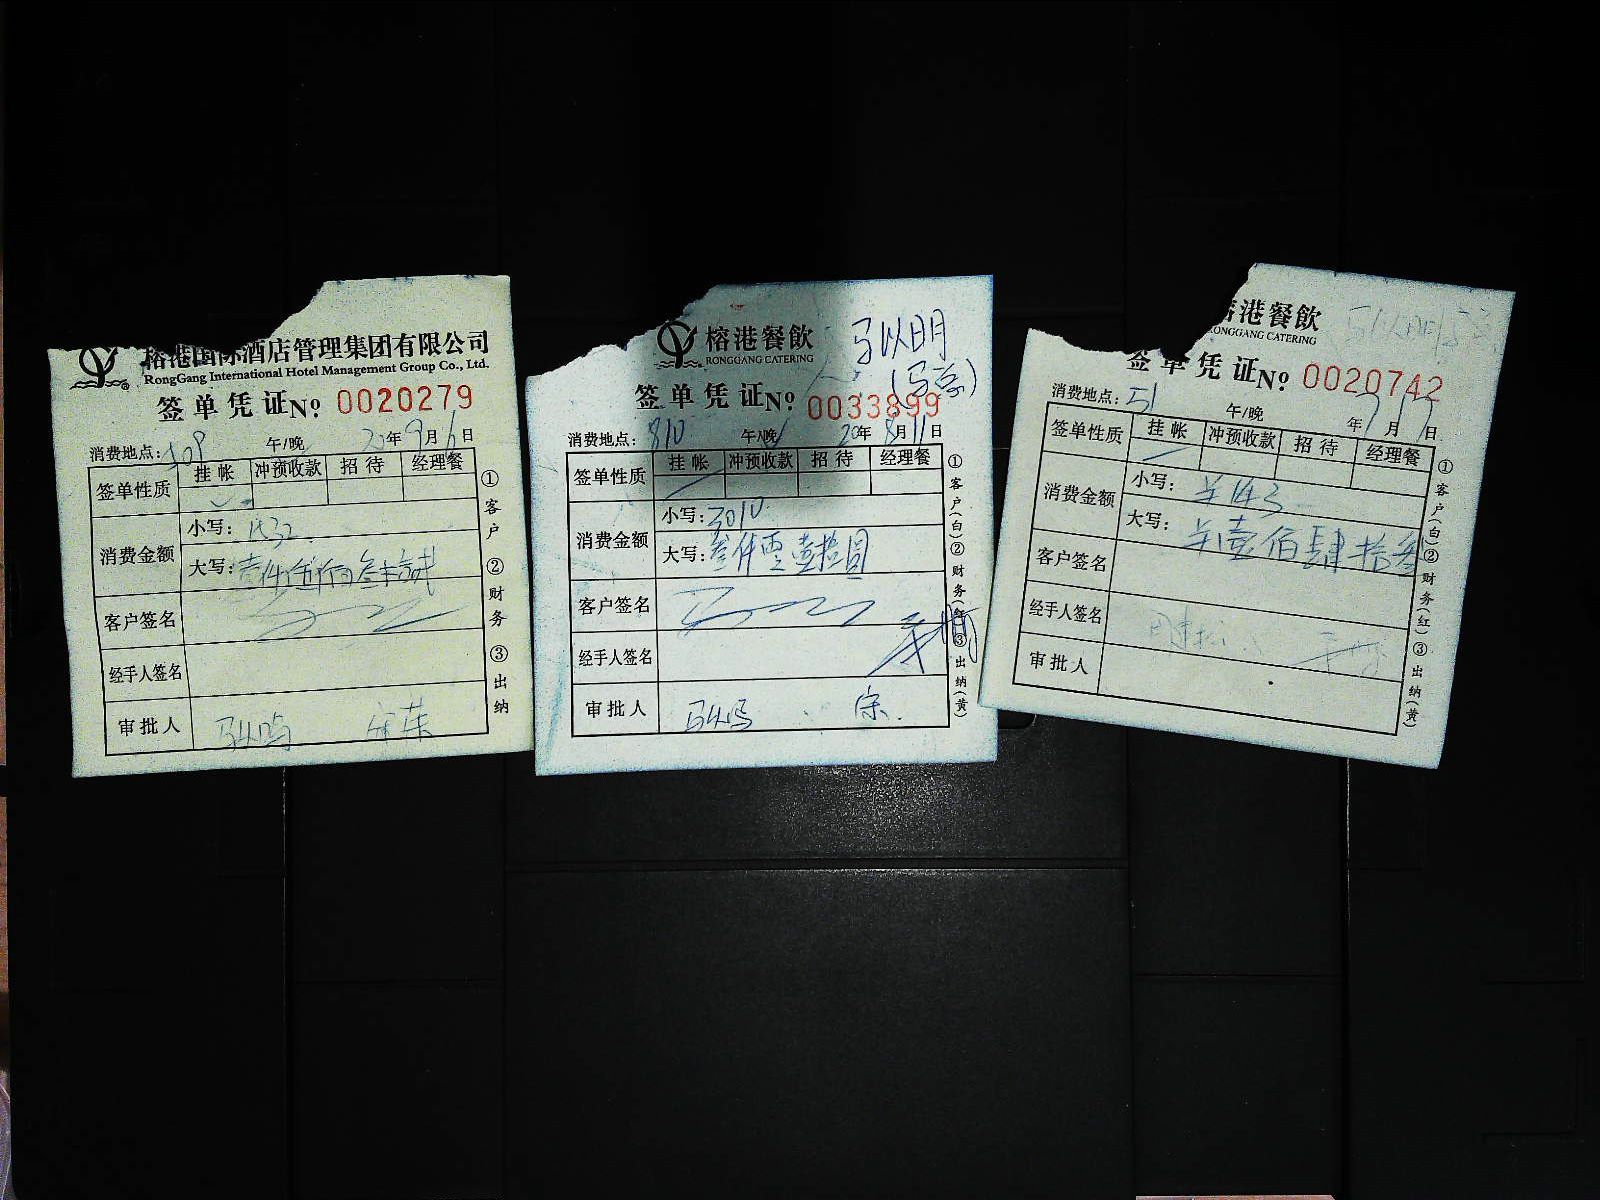 榕港国际酒店管理集团有限公司
RongGang International Hotel Management Group Co., Ltd.
签单凭证 No 0020279
消费地点: 午/晚 20年9月6日
签单性质 挂帐 冲预收款 招待 经理餐
消费金额 小写:
大写: 壹仟伍佰叁拾贰
客户签名
经手人签名
审批人
①客户 ②财务 ③出纳
榕港餐飲
RONGGANG CATERING
马以明
签单凭证 No 0033899
消费地点: 810 午/晚 20年8月11日
签单性质 挂帐 冲预收款 招待 经理餐
消费金额 小写: 3010
大写: 叁仟零壹拾圆
客户签名
经手人签名
审批人 宋
①客户(白)②财务(红)③出纳(黄)
港餐飲
RONGGANG CATERING
签单凭证 No 0020742
消费地点: 51 午/晚 年 月 日
签单性质 挂帐 冲预收款 招待 经理餐
消费金额 小写: ¥143
大写: 壹佰肆拾叁
客户签名
经手人签名
审批人
①客户(白)②财务(红)③出纳(黄)